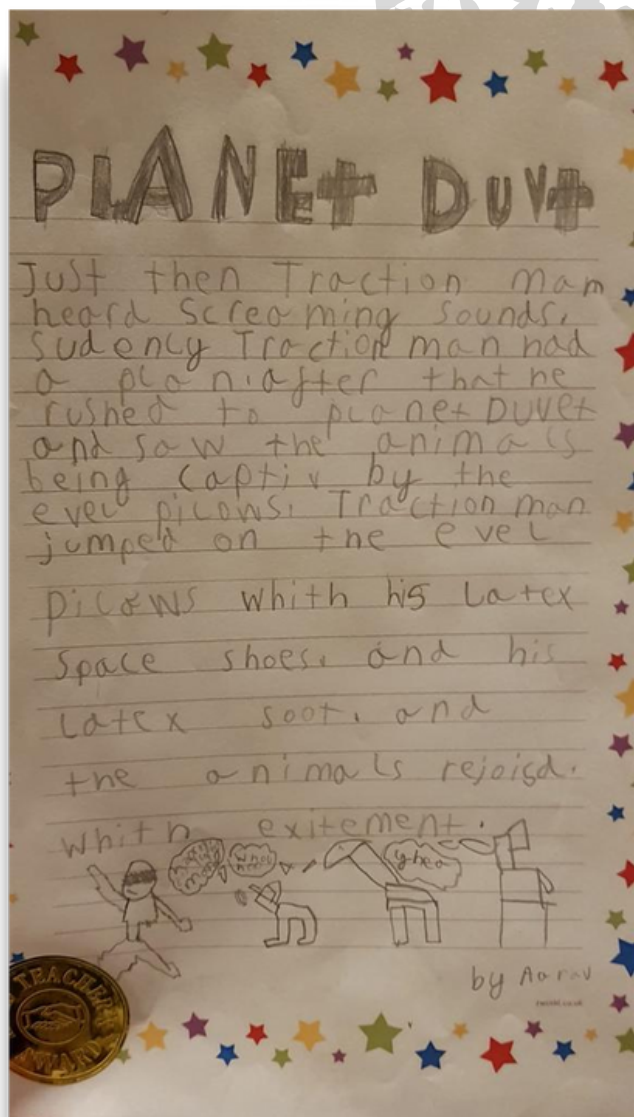 PLANEt DUVt
Just then Traction man
heard screaming sounds.
sudency Traction man had
a plan. after that he
rushed to planet DUVet
and saw the animals
being captiv by the
evel pilows. Traction man
jumped on the evel
pilows whith his Latex
space shoes. and his
Latex soot. and
the animals rejoisd.
whith exitement.
yhea
by Aarav
TEACHER
AWARD
twinkl.co.uk